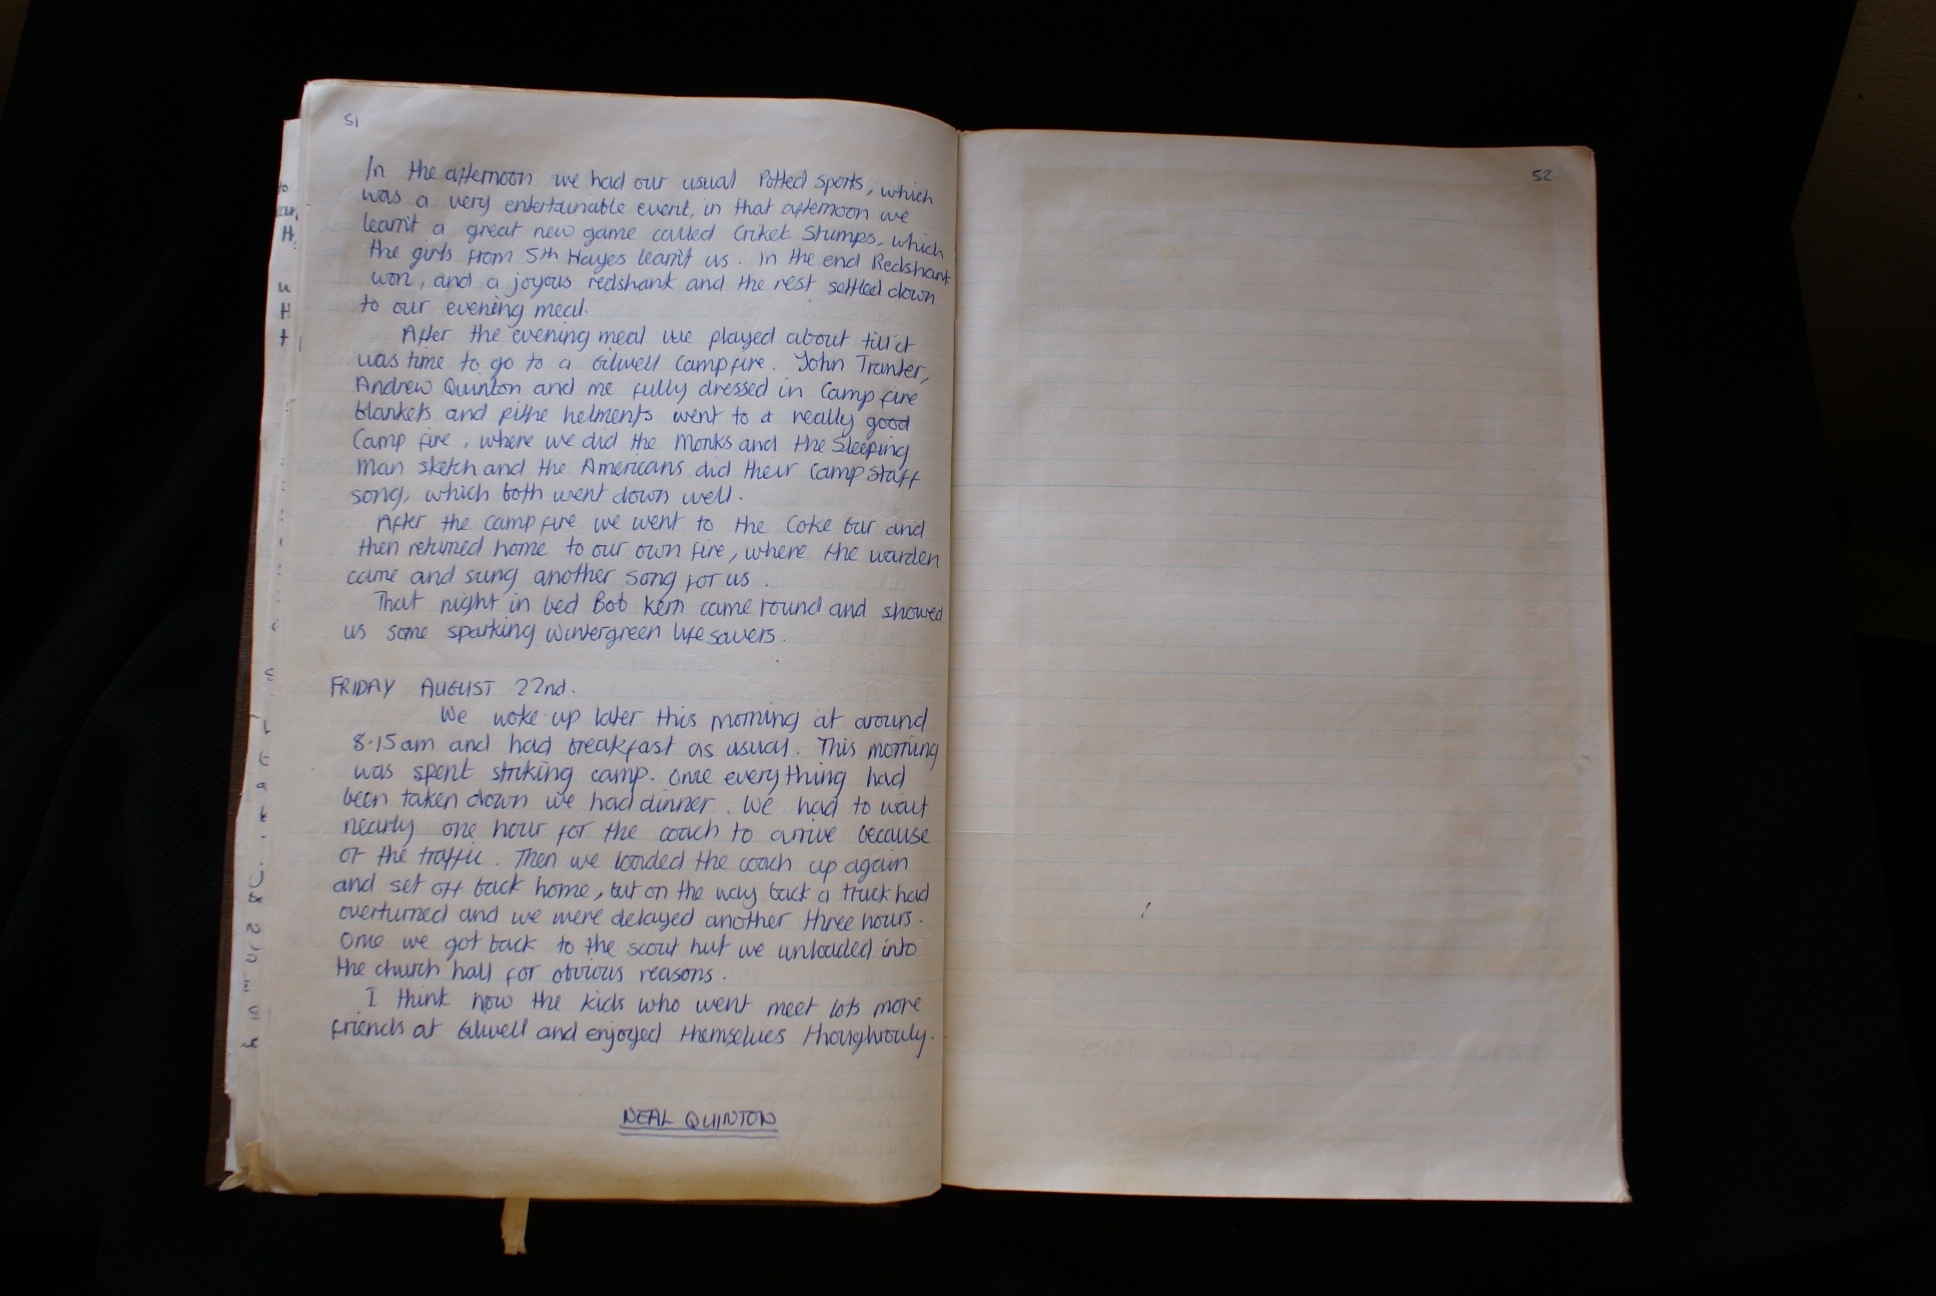 51
In the afternoon we had our usual Potted Sports, which
was a very entertainable event, in that afternoon we
learnt a great new game called Criket Stumps, which
the girls from 5th Hayes learnt us. In the end Redshank
won, and a joyous redshank and the rest settled down
to our evening meal.
After the evening meal we played about till it
was time to go to a Gilwell Camp fire. John Tranter,
Andrew Quinton and me fully dressed in Camp fire
blankets and pithe helments went to a really good
Camp fire, where we did the Monks and the Sleeping
Man sketch and the Americans did their Camp Staff
song, which both went down well.
After the camp fire we went to the Coke bar and
then returned home to our own fire, where the warden
came and sung another song for us.
That night in bed Bob Kern came round and showed
us some sparking wintergreen life savers.
FRIDAY AUGUST 22nd.
We woke up later this morning at around
8.15am and had breakfast as usual. This morning
was spent striking camp. Once everything had
been taken down we had dinner. We had to wait
nearly one hour for the coach to arrive because
of the traffic. Then we loaded the coach up again
and set off back home, but on the way back a truck had
overturned and we were delayed another three hours.
Once we got back to the scout hut we unloaded into
the church hall for obvious reasons.
I think now the kids who went meet lots more
friends at Gilwell and enjoyed themselves thoughrouly.
NEAL QUINTON
52